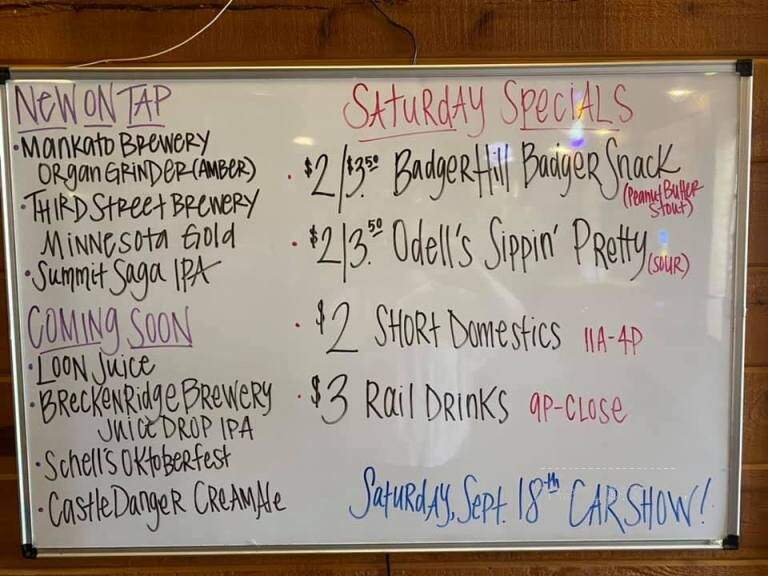 NEW ON TAP
• Mankato Brewery
Organ Grinder (Amber)
• Third Street Brewery
Minnesota Gold
• Summit Saga IPA
COMING SOON
• Loon Juice
• Breckenridge Brewery
Juice Drop IPA
• Schell's Oktoberfest
• Castle Danger Cream Ale
SATURDAY SPECIALS
• $2/$3.50 Badger Hill Badger Snack
(Peanut Butter
Stout)
• $2/3.50 Odell's Sippin' Pretty (SOUR)
• $2 Short Domestics 11A-4P
• $3 Rail Drinks 9P-CLOSE
Saturday, Sept. 18th CAR SHOW!